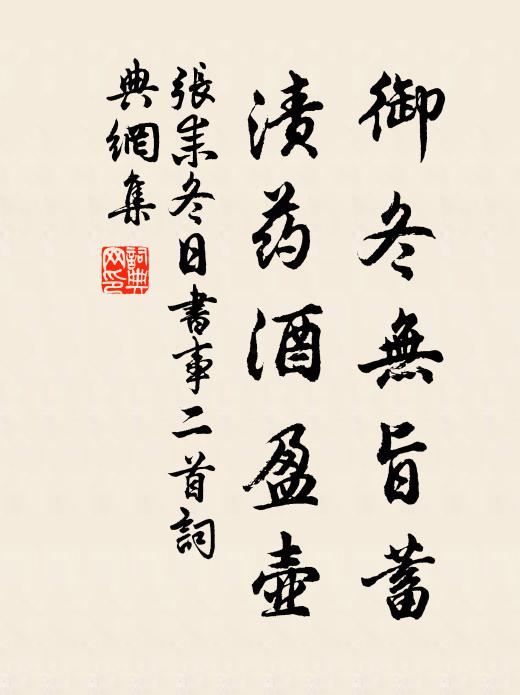 御冬無旨蓄
漬药酒盈壺
張耒冬日書事二首詞
典網集
詞典
网印